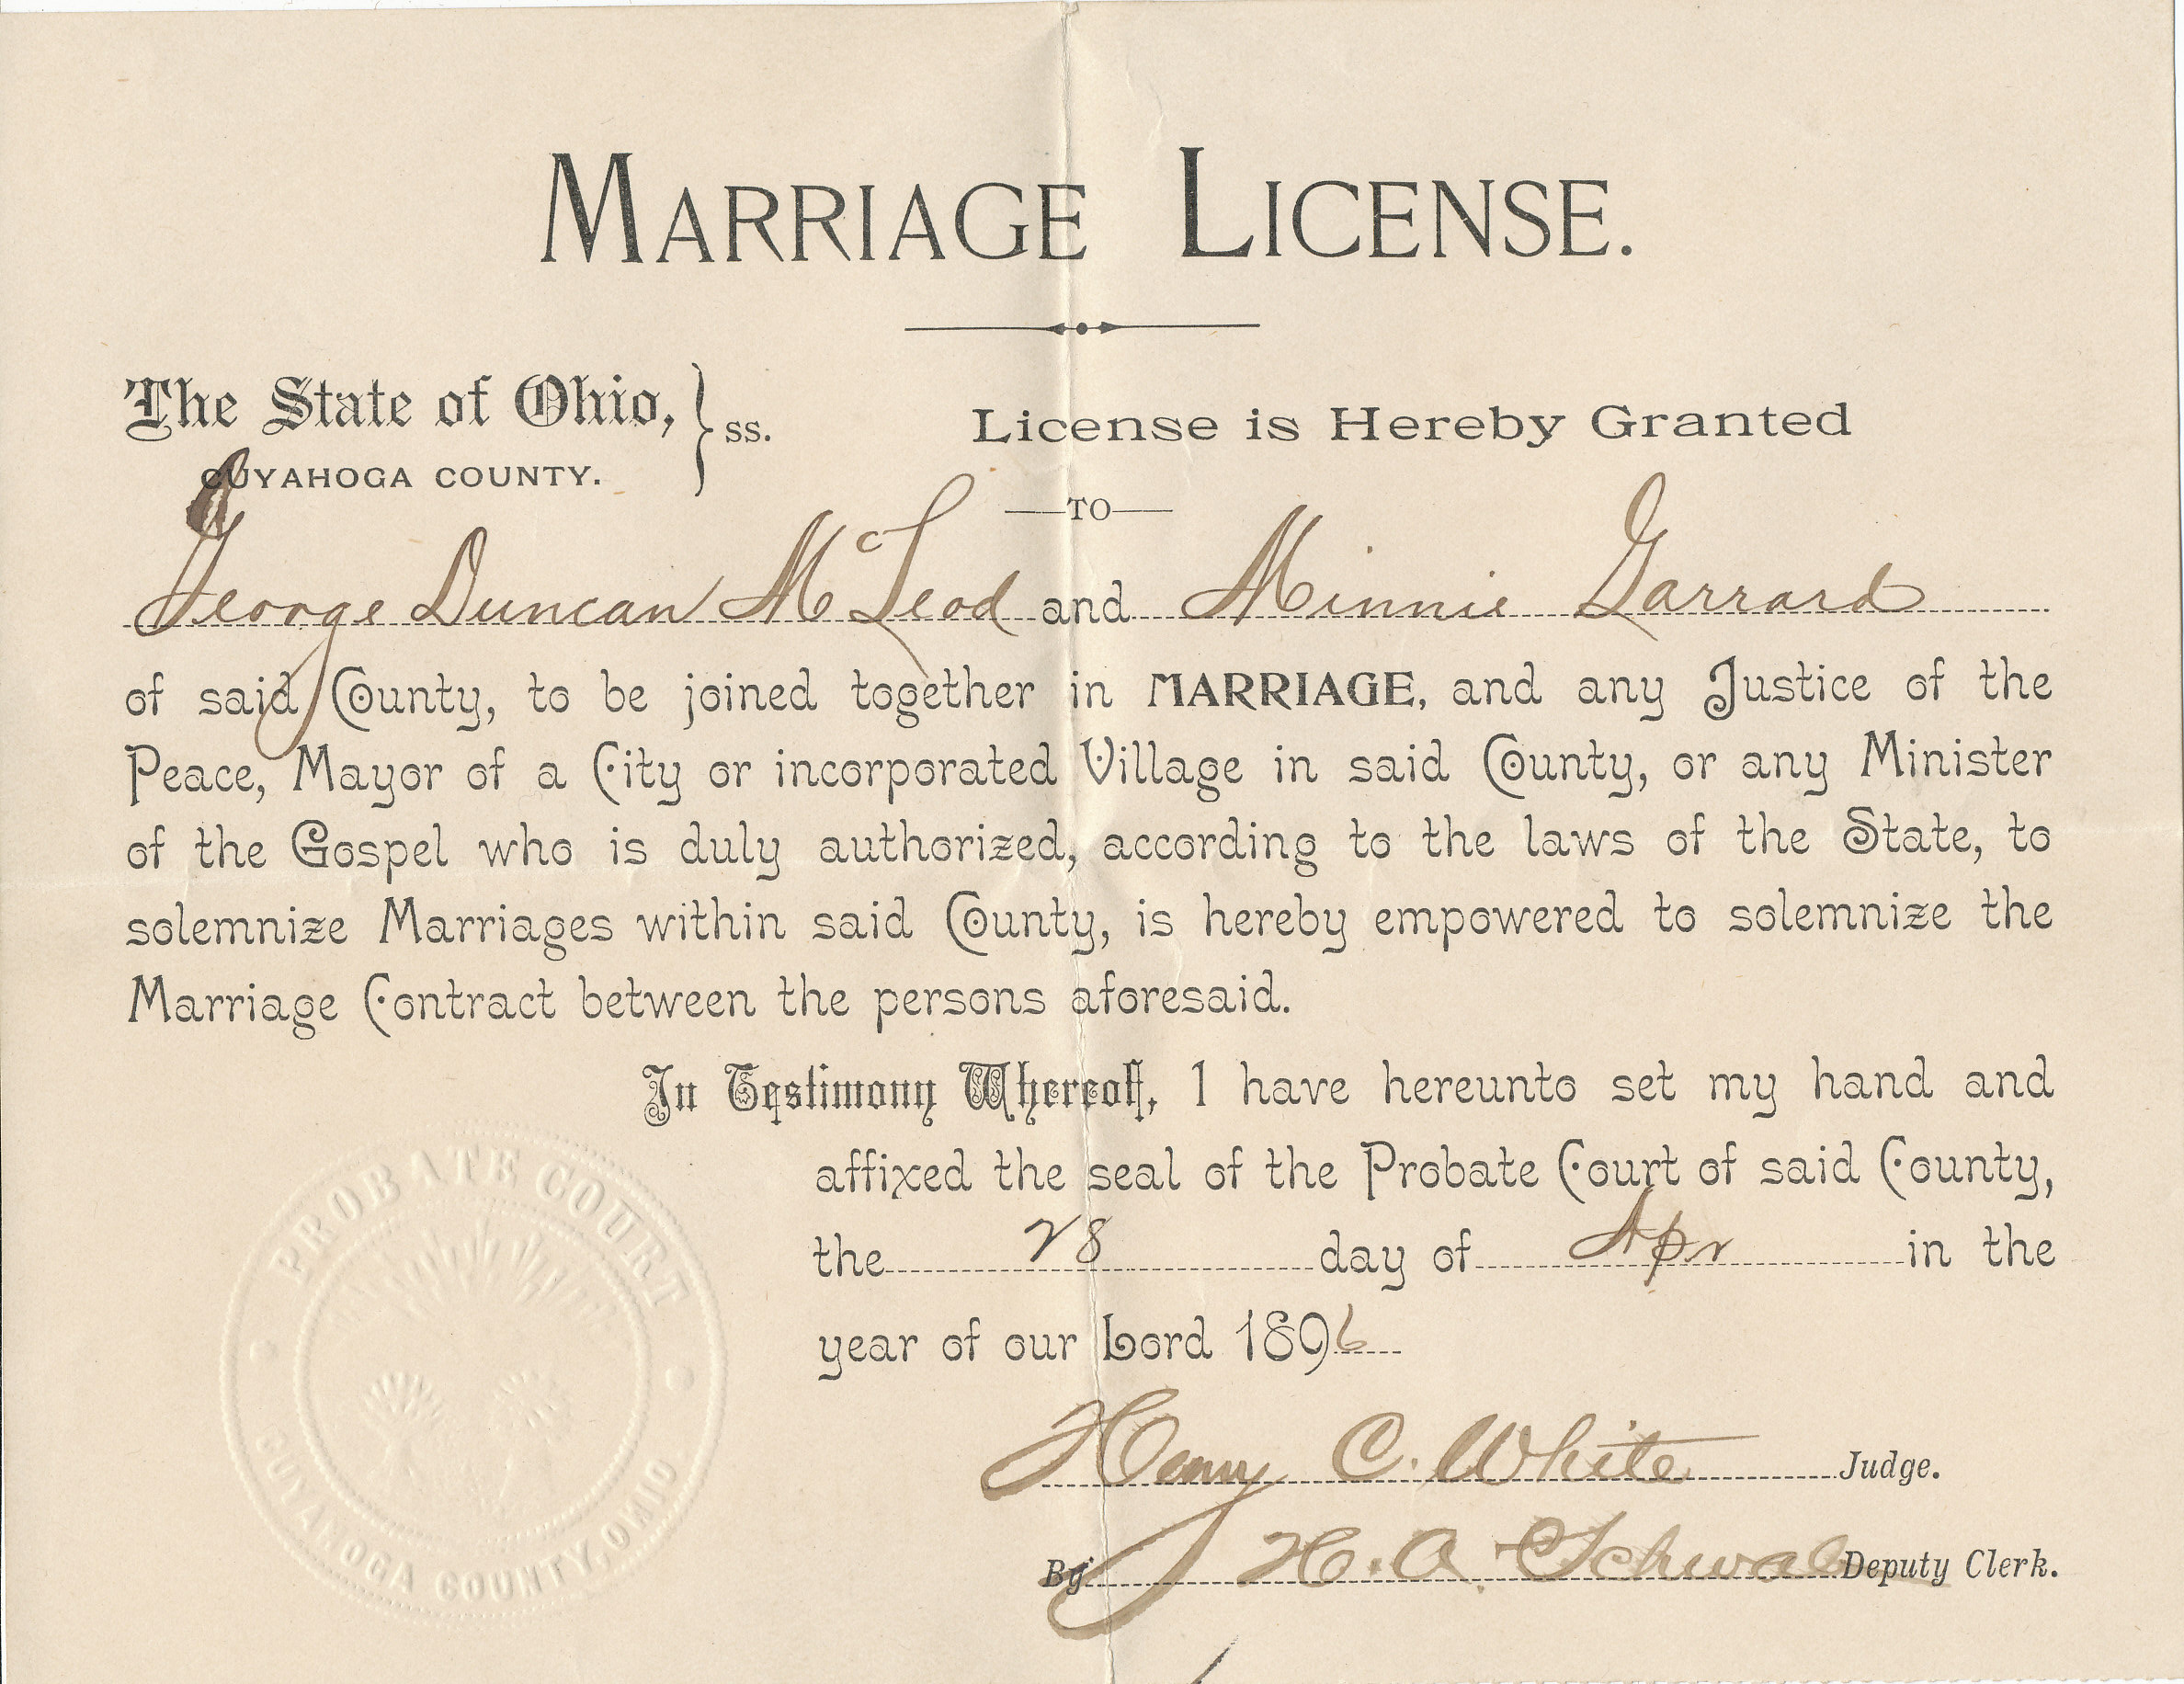 MARRIAGE LICENSE.
The State of Ohio, } ss.
CUYAHOGA COUNTY.
License is Hereby Granted
—TO—
George Duncan McLeod and Minnie Garrard
of said County, to be joined together in MARRIAGE, and any Justice of the
Peace, Mayor of a City or incorporated Village in said County, or any Minister
of the Gospel who is duly authorized, according to the laws of the State, to
solemnize Marriages within said County, is hereby empowered to solemnize the
Marriage Contract between the persons aforesaid.
In Testimony Whereof, I have hereunto set my hand and
affixed the seal of the Probate Court of said County,
the 28 day of Apr in the
year of our Lord 1896
Henry C. White Judge.
By H. A. Schwab Deputy Clerk.
PROBATE COURT
CUYAHOGA COUNTY, OHIO